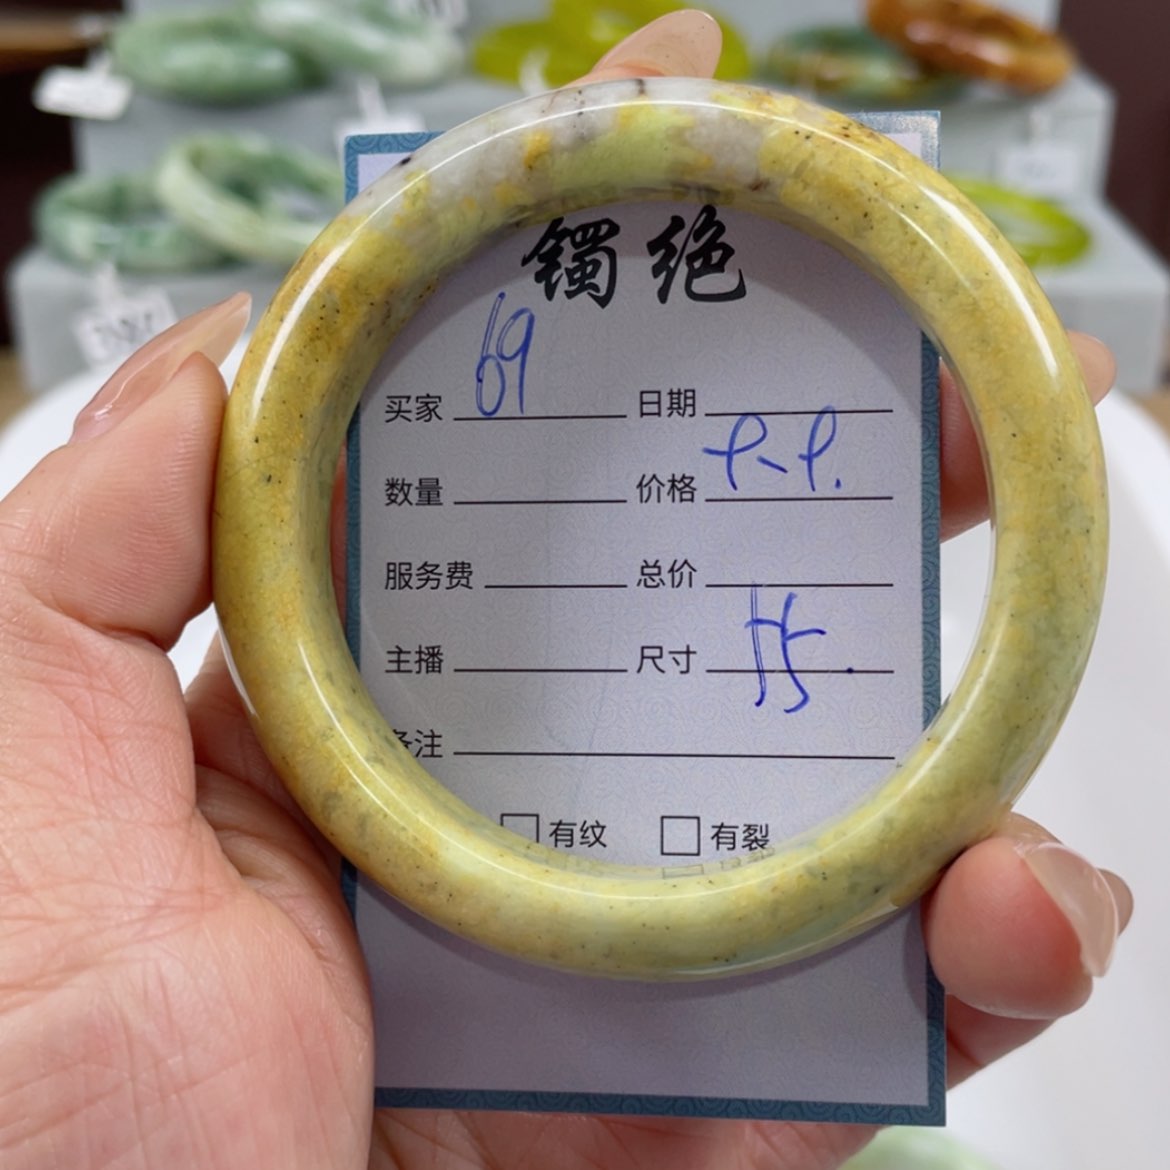 镯绝
买家 69 日期
数量 价格
服务费 总价
主播 尺寸 55.
备注
有纹 有裂